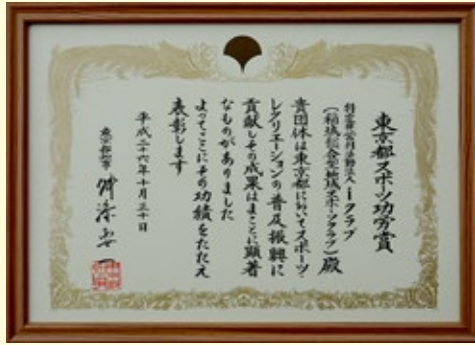 東京都スポーツ功労賞
特定非営利活動法人 Iクラブ
(稲城総合型地域スポーツクラブ) 殿
貴団体は東京都においてスポーツ・
レクリエーションの普及振興に
貢献しその成果はまことに顕著
なものがありました
よってここにその功績をたたえ
表彰します
平成二十六年十月三十日
東京都知事 舛添要一